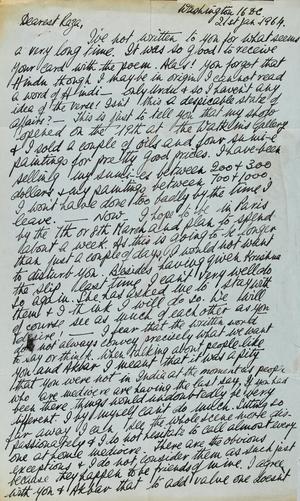 Washington 16 DC
21st Jan 1964.
Dearest Raza,
I've not written to you for what seems
a very long time. It was so good to receive
your card with the poem. Alas! you forget that
Hindu though I may be in origin I cannot read
a word of Hindi — only Urdu & so I haven't any
idea of the verse! Isn't this a despicable state of
affairs? — This is just to tell you that my show
opened on the 19th at the Watkins Gallery
& I sold a couple of oils and four
paintings for pretty good prices. I have been
selling my between 200 & 300
dollars & my paintings between 700 & 1000.
I won't have done too badly by the time I
leave. — Now I hope to be in Paris
by the 7th or 8th March and plan to spend
about a week. As this is going to be longer
than just a couple of days I would not want
to disturb you. Besides having given Krishna
the slip last time I can't very well do
so again. She has asked me to stay with
them & I think I will do so. We will
of course see as much of each other as you
desire! — I fear that the written word
does not always convey precisely what we want
to say or think. When talking about people like
you and Akbar I meant that it was a pity
that you were not in India at the moment as people
who are mediocre are having the last say. If you had
been there things would undoubtedly be very
different. I myself can't do much. Sitting so
far away I can see the whole scene more dis-
passionately & I do not hesitate to call almost every
one at home mediocre. There are the obvious
exceptions & I do not consider them as such just
because they happen to be friends of mine. I agree
with you & Akbar that to add value one doesn't